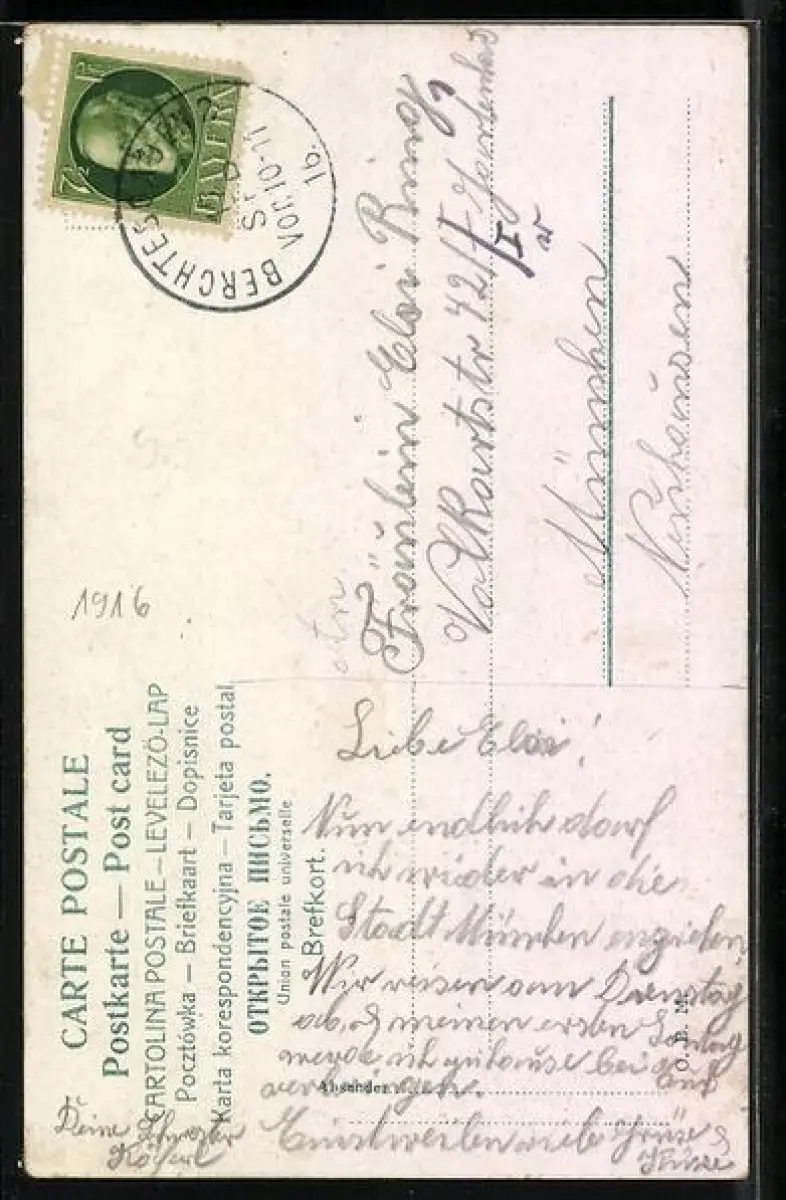 CARTE POSTALE
Postkarte — Post card
CARTOLINA POSTALE — LEVELEZÖ-LAP
Pocztówka — Briefkaart — Dopisnice
Karta korespondencyjna — Tarjeta postal
ОТКРЫТОЕ ПИСЬМО.
Union postale universelle
Brefkort.
1916
7½ Pf
BAYERN
BERCHTES
VOR. 10-11
16.
Fräulein Elsi Ring
Volkartstr 42/I Gartenhaus
I
München
Neuhausen
Liebe Elsi!
Nun endlich darf
ich wieder in die
Stadt München einziehen
Wir reisen am Dienstag
ab, & meinen ersten Sonntag
werde ich zuhause bei Euch
verbringen.
Einstweilen viele Grüße &
Küsse
Deine Schwester
Absender
O. B. M.